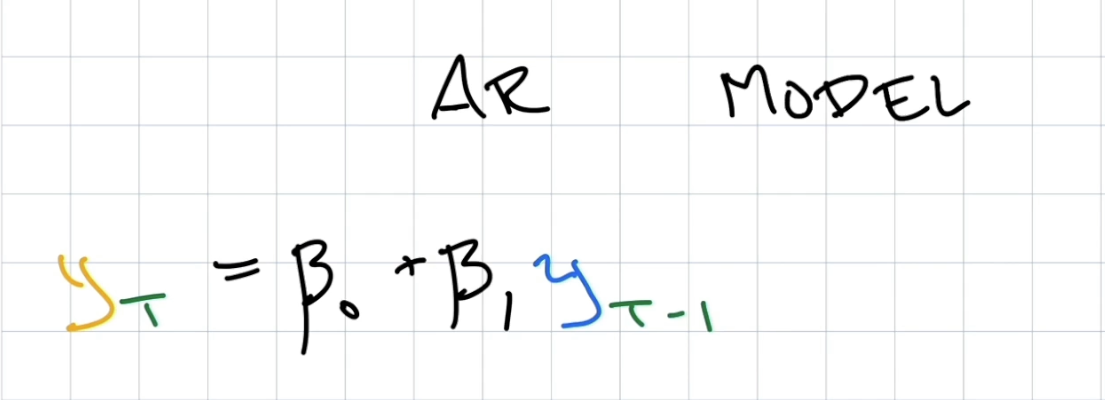 AR MODEL
y_T = β_0 + β_1 y_{T-1}